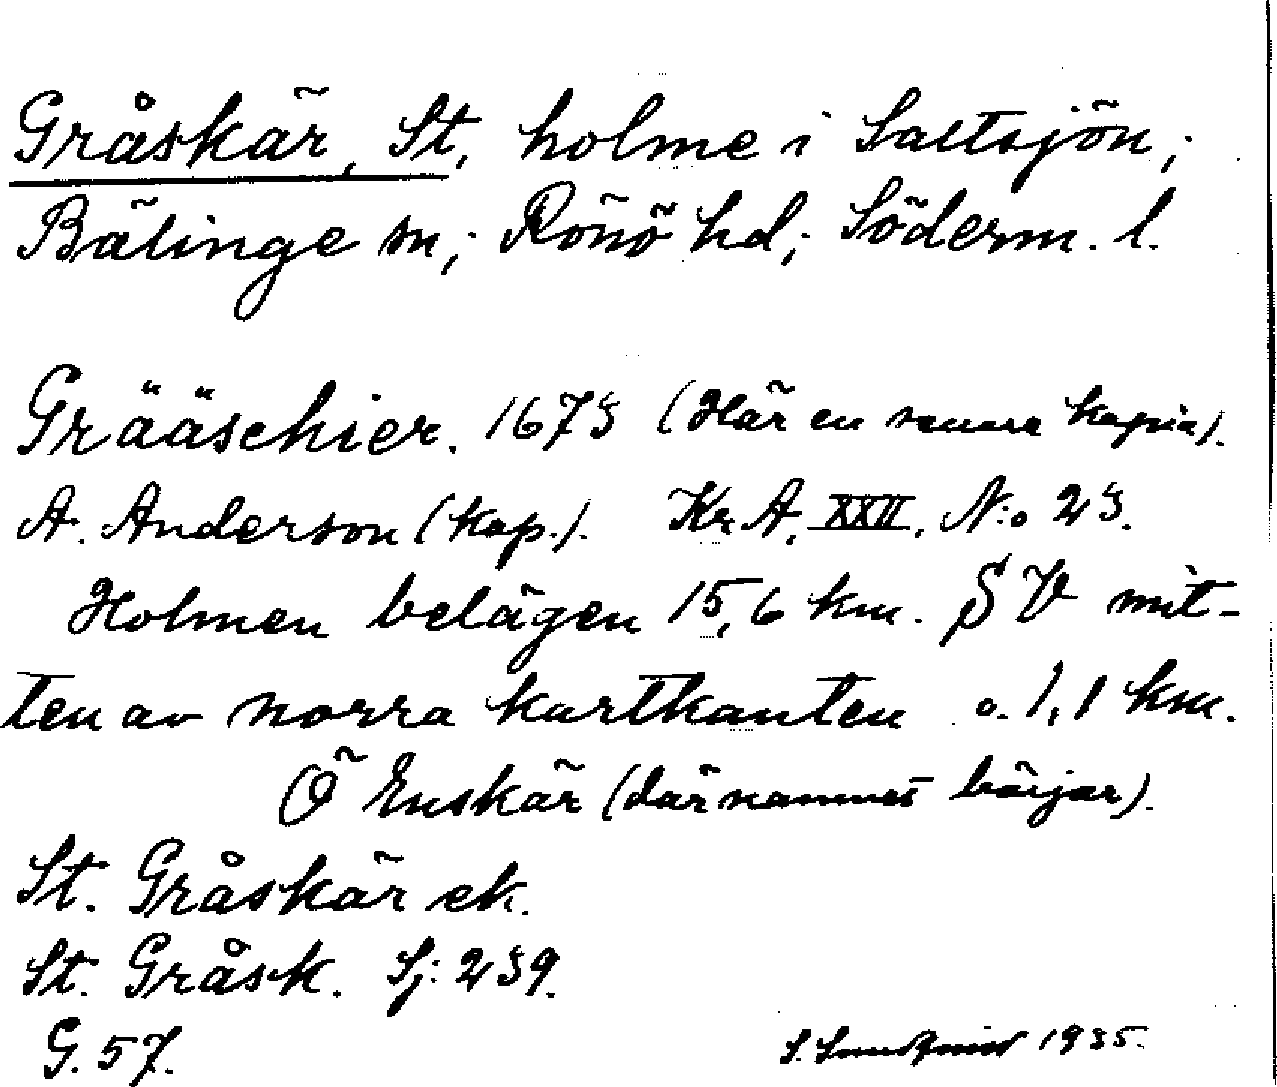 Gråskär, St, holme i Saltsjön,;
Bälinge sn,; Rönö hd,; Söderm. l.
Grääschier. 1673 (Här en senare kopia).
A. Anderson (kop.). Kr. A. XXII. N:o 23.
Holmen belägen 15,6 km. SV mit-
ten av norra kartkanten o. 1,1 km.
Ö Enskär (där namnet börjar).
St. Gråskär ek.
St. Gråsk. Sj: 239.
G. 57.
S. Sundqvist 1935.